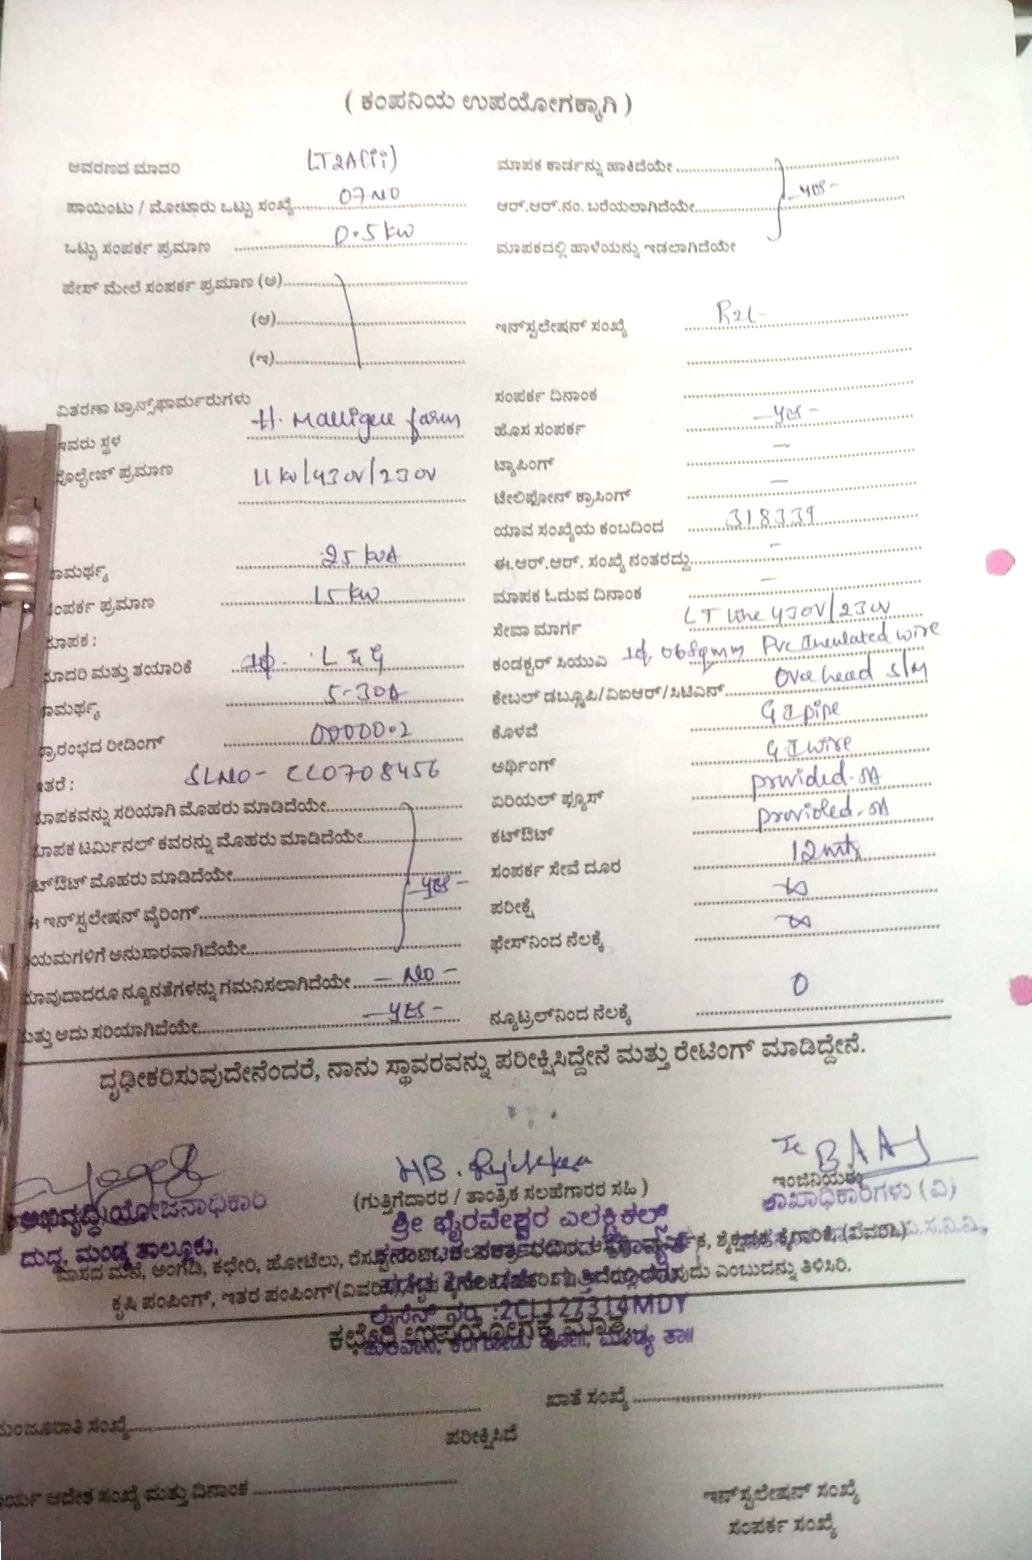 ( ಕಂಪನಿಯ ಉಪಯೋಗಕ್ಕಾಗಿ )
ಆವರಣದ ಮಾದರಿ LT2A(ii)
ಪಾಯಿಂಟು / ಮೋಟಾರು ಒಟ್ಟು ಸಂಖ್ಯೆ 07 NO
ಒಟ್ಟು ಸಂಪರ್ಕ ಪ್ರಮಾಣ 0.5 kw
ಪೇಸ್ ಮೇಲೆ ಸಂಪರ್ಕ ಪ್ರಮಾಣ (ಅ)
(ಆ)
(ಇ)
ವಿತರಣಾ ಟ್ರಾನ್ಸ್‌ಫಾರ್ಮರುಗಳು
ಇವರು ಸ್ಥಳ H. Malligere farm
ವೊಲ್ಟೇಜ್ ಪ್ರಮಾಣ 11kv/430V/230V
ಸಾಮರ್ಥ್ಯ 25 kVA
ಸಂಪರ್ಕ ಪ್ರಮಾಣ 15 kw
ಮಾಪಕ :
ಮಾದರಿ ಮತ್ತು ತಯಾರಿಕೆ 1ф- L & G
ಸಾಮರ್ಥ್ಯ 5-30A
ಪ್ರಾರಂಭದ ರೀಡಿಂಗ್ 00000.2
ಇತರೆ : SLNO- CC0708456
ಮಾಪಕವನ್ನು ಸರಿಯಾಗಿ ಮೊಹರು ಮಾಡಿದೆಯೇ
ಮಾಪಕ ಟರ್ಮಿನಲ್ ಕವರನ್ನು ಮೊಹರು ಮಾಡಿದೆಯೇ
ಕಟ್‌ಔಟ್ ಮೊಹರು ಮಾಡಿದೆಯೇ - yes -
ಈ ಇನ್‌ಸ್ಟಲೇಷನ್ ವೈರಿಂಗ್
ನಿಯಮಗಳಿಗೆ ಅನುಸಾರವಾಗಿದೆಯೇ
ಯಾವುದಾದರೂ ನ್ಯೂನತೆಗಳನ್ನು ಗಮನಿಸಲಾಗಿದೆಯೇ - NO -
ಮತ್ತು ಅದು ಸರಿಯಾಗಿದೆಯೇ - yes -
ಮಾಪಕ ಕಾರ್ಡನ್ನು ಹಾಕಿದೆಯೇ
ಆರ್.ಆರ್.ನಂ. ಬರೆಯಲಾಗಿದೆಯೇ - yes -
ಮಾಪಕದಲ್ಲಿ ಹಾಳೆಯನ್ನು ಇಡಲಾಗಿದೆಯೇ
ಇನ್‌ಸ್ಟಲೇಷನ್ ಸಂಖ್ಯೆ
ಸಂಪರ್ಕ ದಿನಾಂಕ
ಹೊಸ ಸಂಪರ್ಕ - yes -
ಟ್ಯಾಪಿಂಗ್ -
ಟೇಲಿಫೋನ್ ಕ್ರಾಸಿಂಗ್ -
ಯಾವ ಸಂಖ್ಯೆಯ ಕಂಬದಿಂದ 318339
ಈ.ಆರ್.ಆರ್. ಸಂಖ್ಯೆ ನಂತರದ್ದು -
ಮಾಪಕ ಓದುವ ದಿನಾಂಕ -
ಸೇವಾ ಮಾರ್ಗ LT line 430V/230V
ಕಂಡಕ್ಟರ್ ಸಿಯುಎ 1ф, 06sqmm Pvc Insulated wire
ಕೇಬಲ್ ಡಬ್ಲೂಪಿ/ವಿಐಆರ್/ಸಿಟಿಎನ್ Overhead S/M
ಕೊಳವೆ GI pipe
ಅರ್ಥಿಂಗ್ GI wire
ಏರಿಯಲ್ ಫ್ಯೂಸ್ provided-5A
ಕಟ್‌ಔಟ್ provided-5A
ಸಂಪರ್ಕ ಸೇವೆ ದೂರ 12mts
ಪರೀಕ್ಷೆ ∞
ಫೇಸ್‌ನಿಂದ ನೆಲಕ್ಕೆ ∞
ನ್ಯೂಟ್ರಲ್‌ನಿಂದ ನೆಲಕ್ಕೆ 0
ದೃಢೀಕರಿಸುವುದೇನೆಂದರೆ, ನಾನು ಸ್ಥಾವರವನ್ನು ಪರೀಕ್ಷಿಸಿದ್ದೇನೆ ಮತ್ತು ರೇಟಿಂಗ್ ಮಾಡಿದ್ದೇನೆ.
(ಗುತ್ತಿಗೆದಾರರ / ತಾಂತ್ರಿಕ ಸಲಹೆಗಾರರ ಸಹಿ )
ಶಾಖಾಧಿಕಾರಿಗಳು (ವಿ)
ಅಭಿವೃದ್ಧಿ ಯೋಜನಾಧಿಕಾರಿ
ದುದ್ದ, ಮಂಡ್ಯ ತಾಲ್ಲೂಕು.
ಶ್ರೀ ಭೈರವೇಶ್ವರ ಎಲೆಕ್ಟ್ರಿಕಲ್ಸ್
ವಾಸದ ಮನೆ, ಅಂಗಡಿ, ಕಛೇರಿ, ಹೋಟೆಲು,
ಕೃಷಿ ಪಂಪಿಂಗ್, ಇತರ ಪಂಪಿಂಗ್ ಎಂಬುದನ್ನು ತಿಳಿಸಿರಿ.
ಲೈಸೆನ್ಸ್ ನಂ :2CL127314MDY
ಕಛೇರಿ ಉಪಯೋಗಕ್ಕೆ ಮಾತ್ರ
ಮಂಜೂರಾತಿ ಸಂಖ್ಯೆ
ಖಾತೆ ಸಂಖ್ಯೆ
ಪರೀಕ್ಷಿಸಿದೆ
ಕಾರ್ಯ ಆದೇಶ ಸಂಖ್ಯೆ ಮತ್ತು ದಿನಾಂಕ
ಇನ್‌ಸ್ಟಲೇಷನ್ ಸಂಖ್ಯೆ
ಸಂಪರ್ಕ ಸಂಖ್ಯೆ